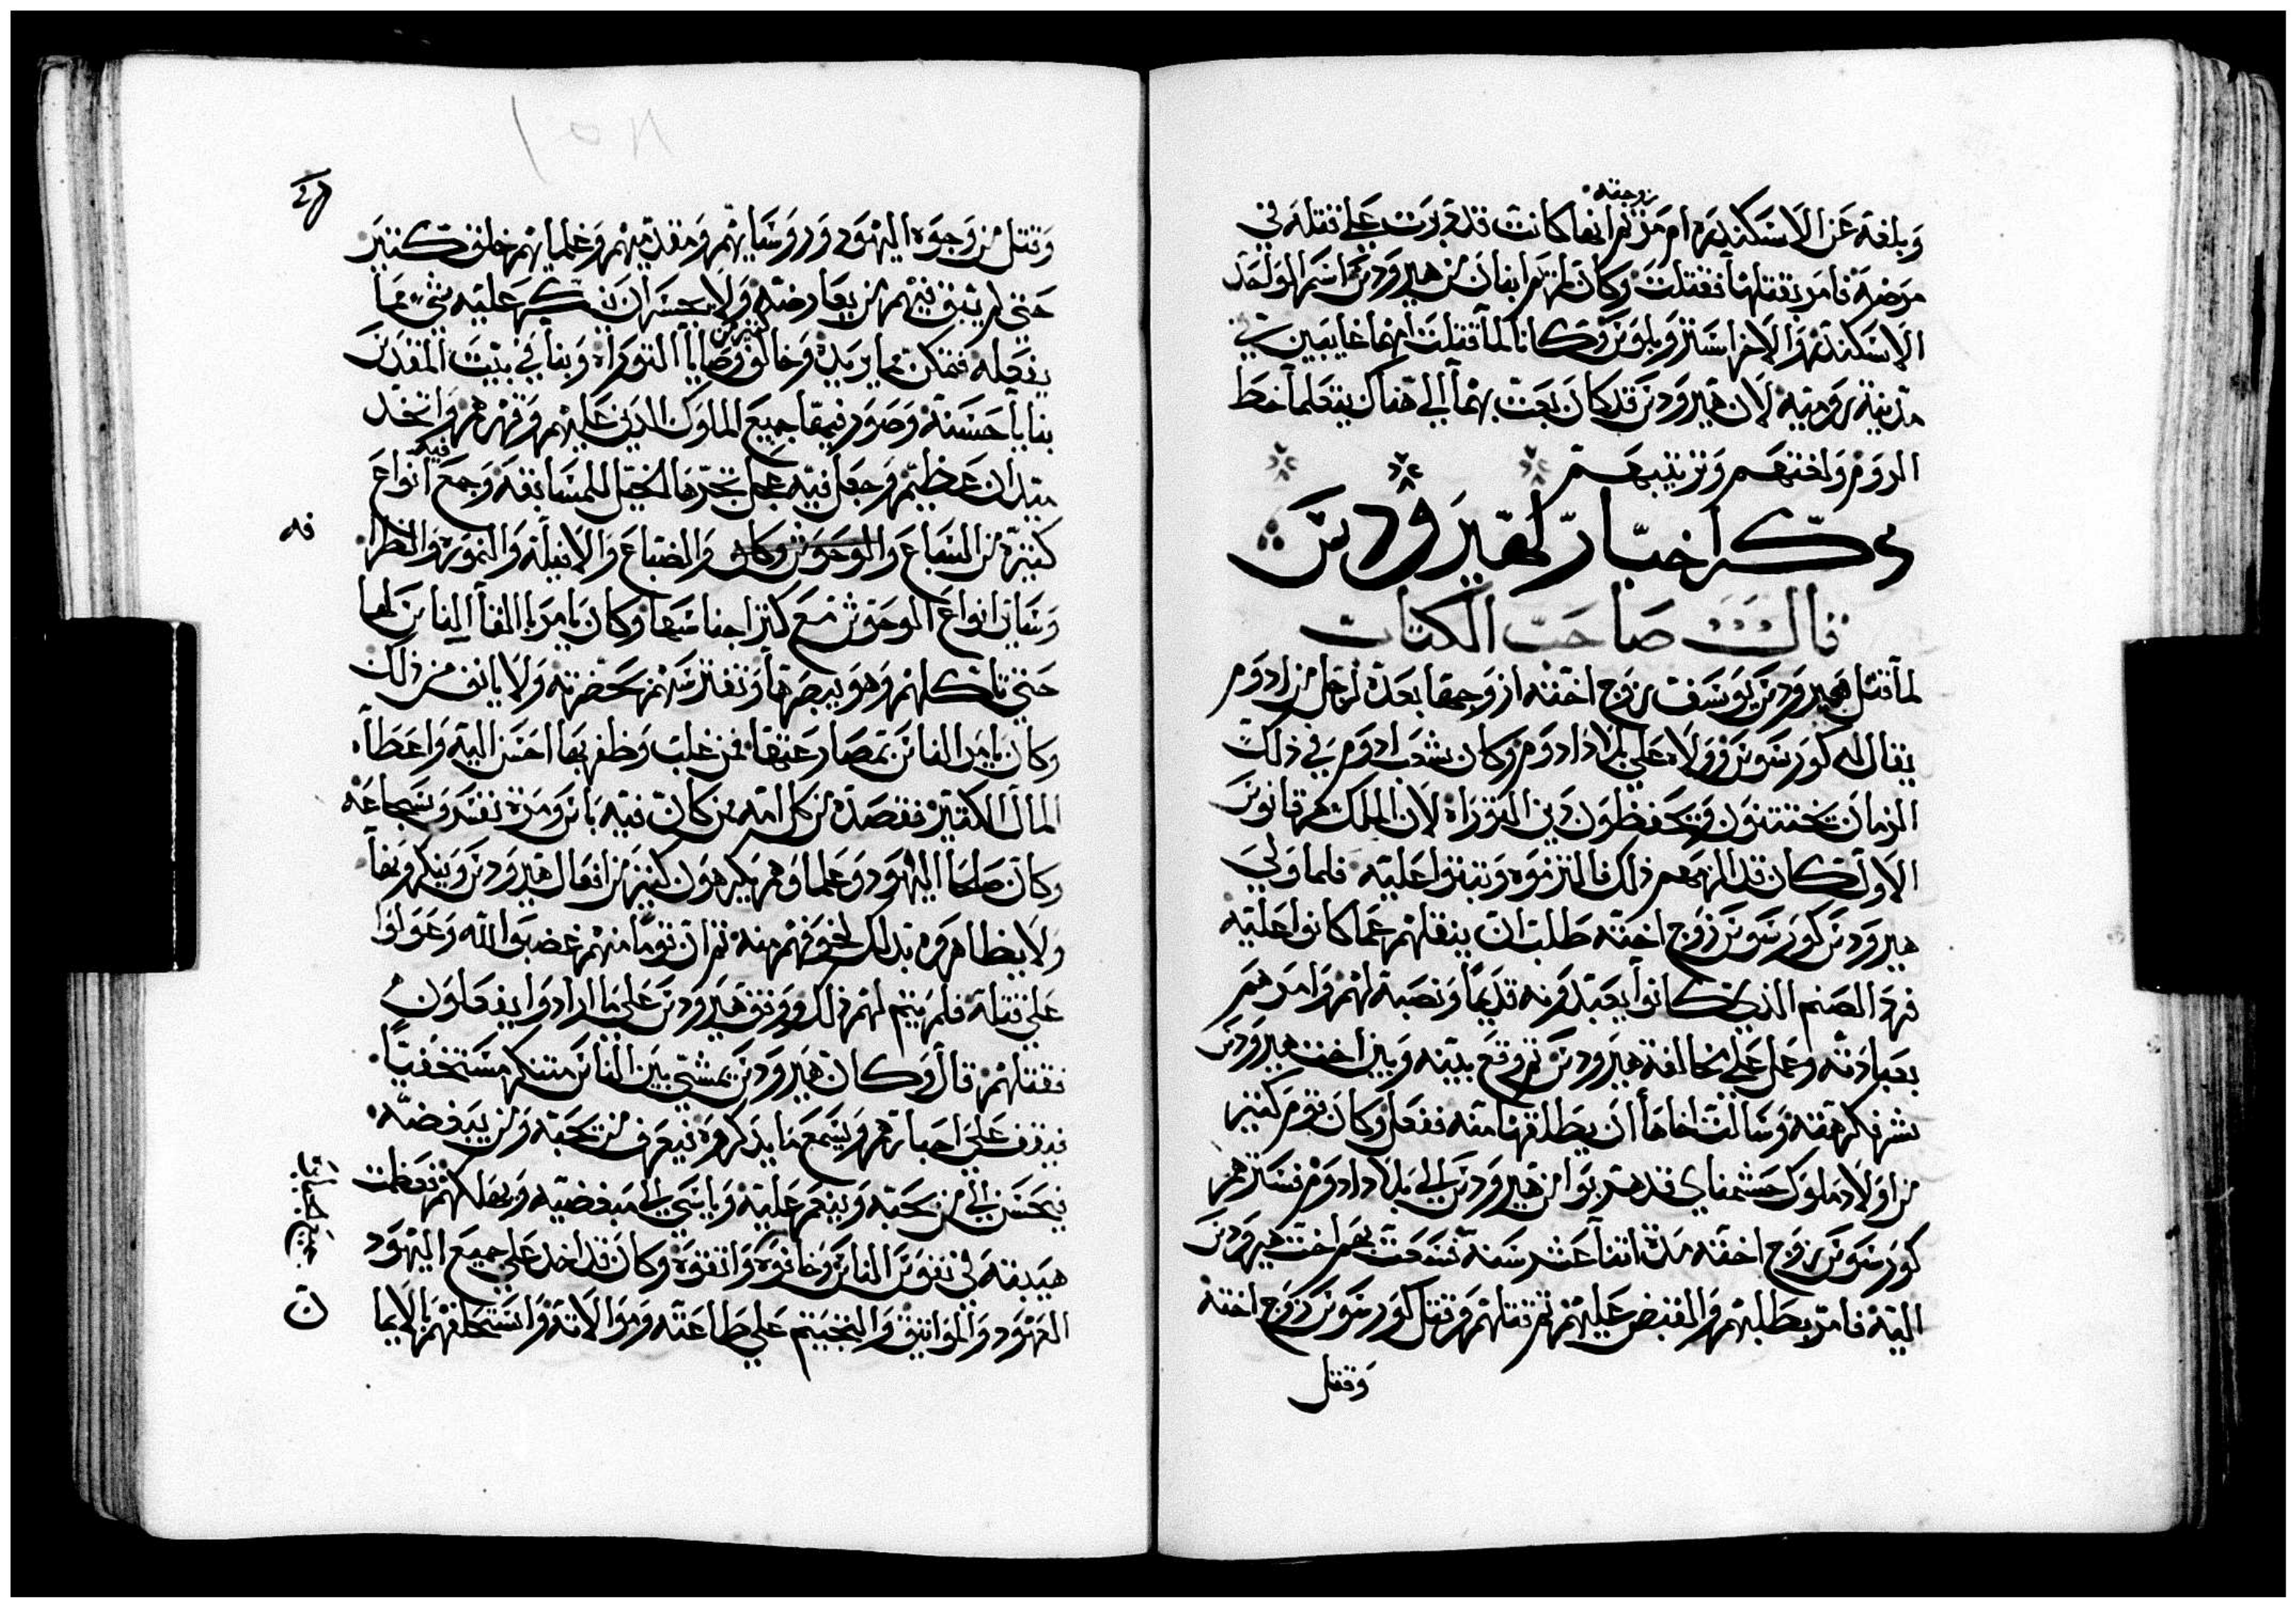 زوجته
وبلغه عن الاسكندره ام مريم انها كانت قد دبرت على قتله في
مرضه فامر بقتلها فقتلت وكان لمريم ابنان من هيرودس اسم الواحد
الاسكندر والاخر استر وبلوس وكانا لما قتلت امهما غايبين في
مدينة روميه لان هيرودس قد كان بعث بهما الي هناك ليتعلما خط
الروم ولغتهم وترتيبهم
ذكر اخبار لهيرودس
قال صاحب الكتاب
لما قتل هيرودس يوسف زوج اخته ازوجها بعده لرجل من ادوم
يقال له كورسوس وولاه علي بلاد ادوم وكان شعب ادوم في ذلك
الزمان يختتنون ويحفظون دين التوراة لان الملك هرقانوس
الاول كان قد الزمهم ذلك فالتزموه وثبتوا عليه فلما ولي
هيرودس كورسوس زوج اخته طلب ان ينقلهم عما كانوا عليه
فرد الصنم الذي كانوا يعبدونه قديما ونصبه لهم وامرهم
بعبادته وعمل علي مخالفة هيرودس ثم وقع بينه وبين اخت هيرودس
شر فكرهته وسالت اخاها ان يطلقها منه ففعل وكان قوم كثير
من اولاد ملوك حشمناي قد هربوا من هيرودس الي بلاد ادوم فسترهم
كورسوس زوج اخته مدة اثنا عشر سنة فسعت بهم اخت هيرودس
اليه فامر بطلبهم والقبض عليهم ثم قتلهم وقتل كورسوس زوج اخته
وقتل
وقتل من وجوه اليهود وروسايهم ومقدميهم وعلمايهم خلق كثير
حتي لم يبق فيهم من يعارضه ولا يجسر ان ينكر عليه شيء مما
يفعله فتمكن مما يريده وخالف كثير من وصايا التوراة وبنا في بيت المقدس
بنايا حسنة وصور فيها جميع الملوك الدين غلبهم وقهرهم واتخد
ميدان عظيم وجعل فيه عجل تجرها الخيل للمسابقة وجمع فيه انواع
كثيرة من السباع والوحوش وكان والضباع والافيلة والنمورة والنظرا
وساير انواع الوحوش مع كثر اجناسها وكان يامر بالقا الناس لها
حتي تاكلهم وهو يبصرها وتفترسهم بحضرته ولا يانف من ذلك
وكان يامر الناس بمصارعتها فمن غلب وظفر بها احسن اليه واعطاه
المال الكثير فقصده من كل امه من كان فيه باس ومرة نفس وشجاعة
وكان صلحا اليهود وعلماوهم يكرهون كثير من افعال هيرودس وينكرونها
ولا يظاهروه بذلك لخوفهم منه ثم ان قوما منهم غضبوا لله وعولوا
علي قتله فلم يتم لهم ذلك ووقف هيرودس علي ما ارادوا يفعلون
فقتلهم قال وكان هيرودس يمشي بين الناس متنكر مستخفيا
فيقف علي اخبارهم ويسمع ما يدكروه فيعرف من يحبه ومن يبغضه
فيحسن الي من يحبه وينعم عليه ويا سي الي مبغضيه ويهلكهم فعظمت
هيبته في نفوس الناس وخافوه واتقوه وكان قد اخد علي جميع اليهود
العهود والمواثيق والبخيتم علي طاعته وموالاته واستحلفهم بالايما
ن